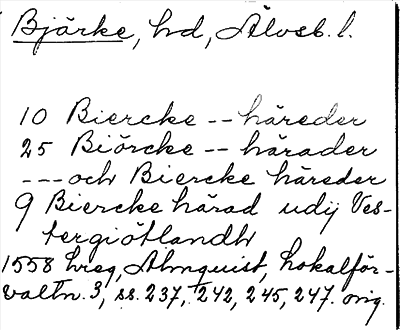 Bjärke, hd, Älvsb. l.
10 Biercke -- häreder
25 Biörcke -- härader
--- och Biercke häreder
9 Biercke härad udij Ves-
tergiötlandh
1558 hreg, Almquist, Lokalför-
valtn. 3, ss. 237, 242, 245, 247. orig.